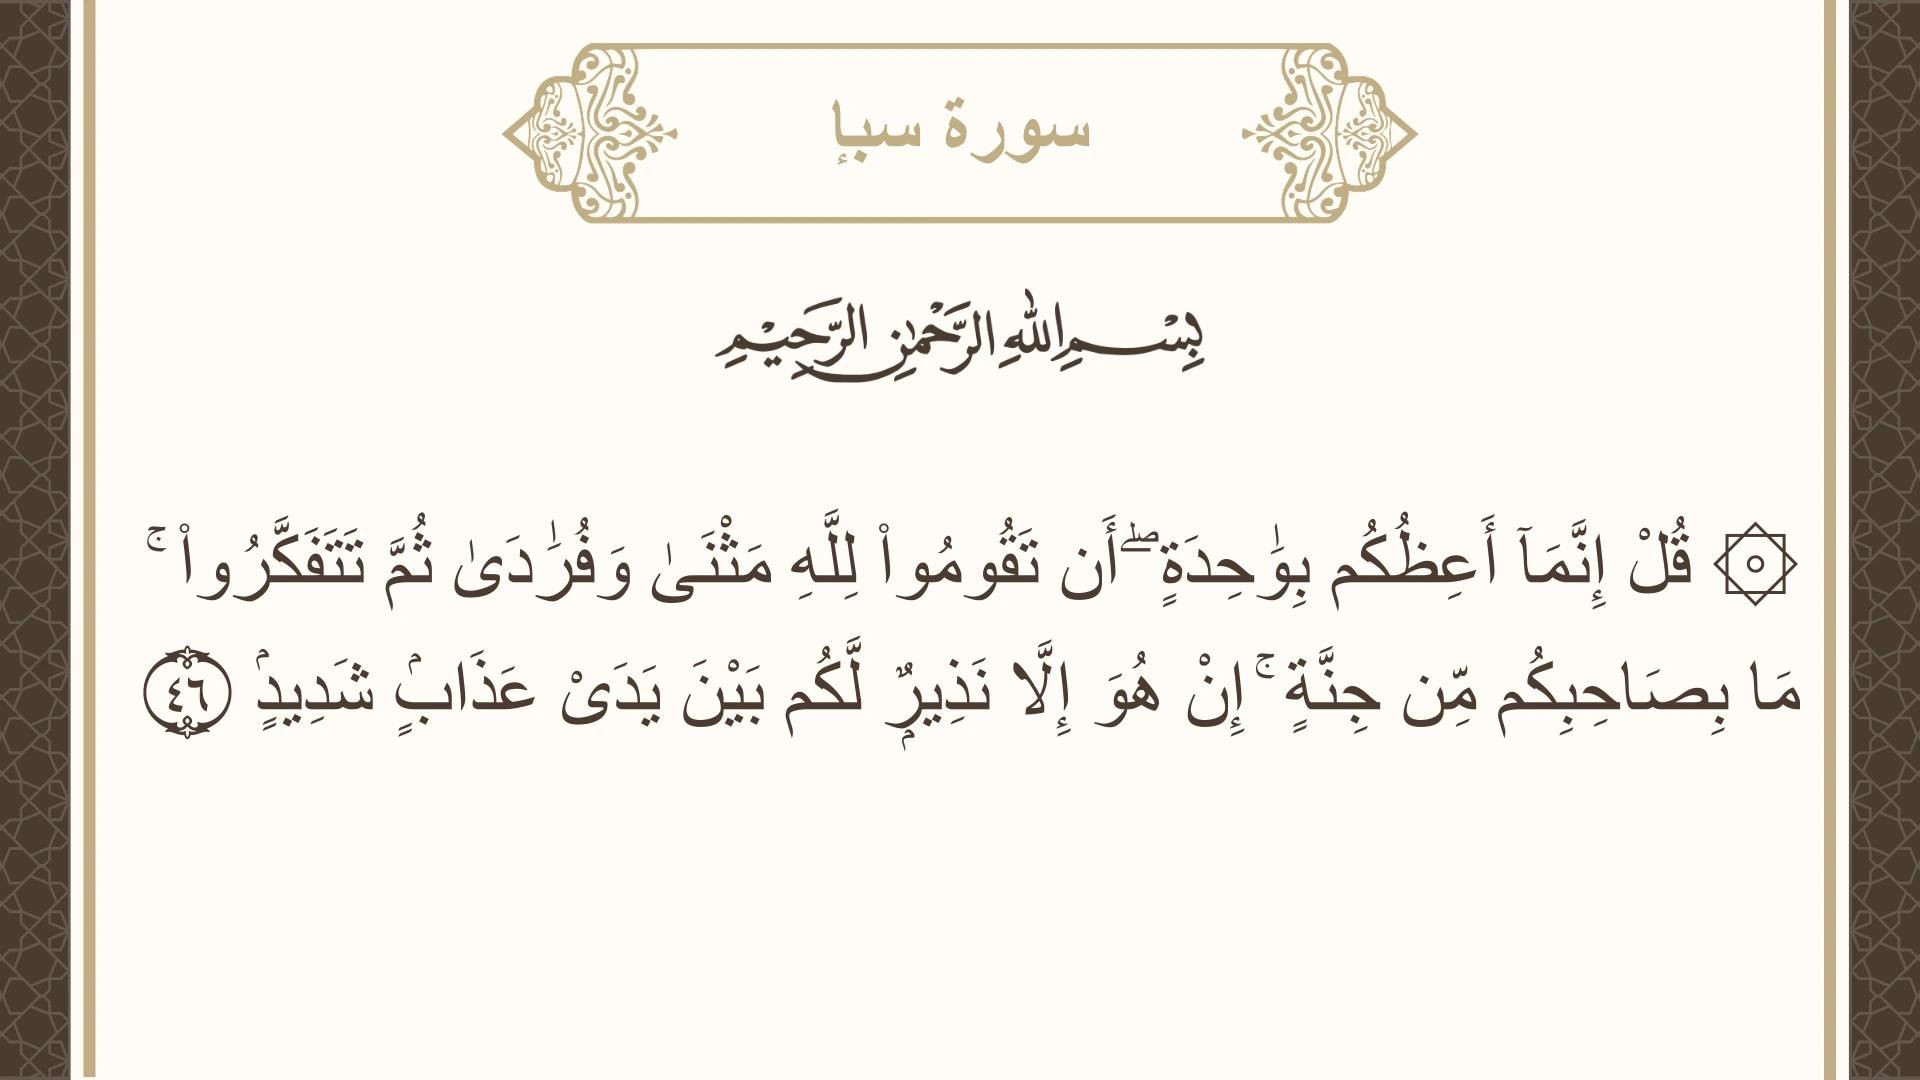 سورة سبإ
بِسْمِ اللهِ الرَّحْمٰنِ الرَّحِيْمِ
۞ قُلْ إِنَّمَآ أَعِظُكُم بِوَٰحِدَةٍ ۖ أَن تَقُومُوا۟ لِلَّهِ مَثْنَىٰ وَفُرَٰدَىٰ ثُمَّ تَتَفَكَّرُوا۟ ۚ
مَا بِصَاحِبِكُم مِّن جِنَّةٍ ۚ إِنْ هُوَ إِلَّا نَذِيرٌۭ لَّكُم بَيْنَ يَدَىْ عَذَابٍۢ شَدِيدٍۢ ٤٦